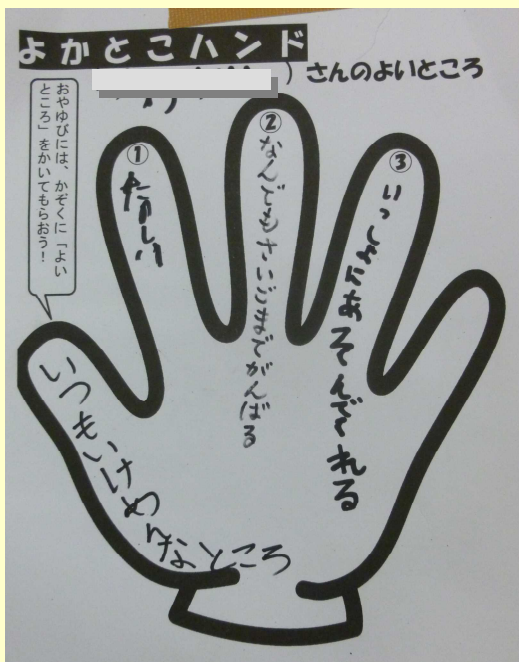 よかとこハンド
）さんのよいところ
おやゆびには、かぞくに「よい
ところ」をかいてもらおう！
①
②
なんでもさいごまでがんばる
③
いっしょにあそんでくれる
いつもいけめんなところ